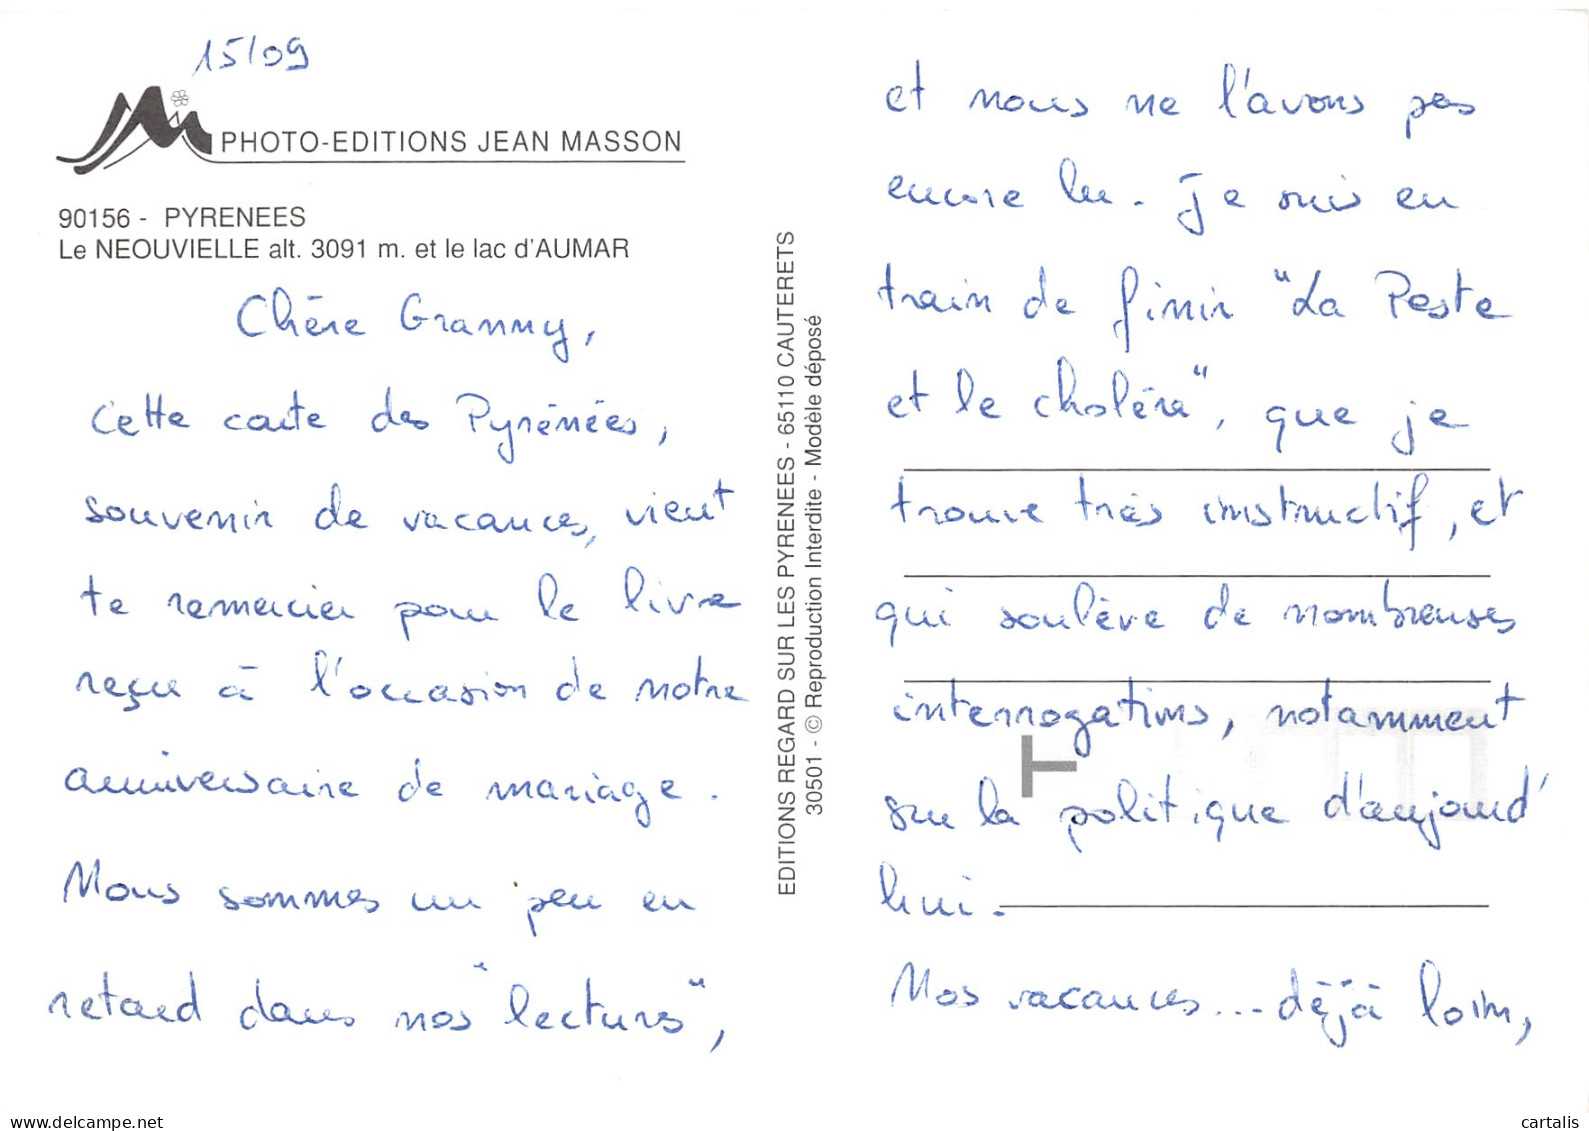 15/09
PHOTO-EDITIONS JEAN MASSON
90156 - PYRENEES
Le NEOUVIELLE alt. 3091 m. et le lac d'AUMAR
Chère Granny,
Cette carte des Pyrénées,
souvenir de vacances, vient
te remercier pour le livre
reçu à l'occasion de notre
anniversaire de mariage.
Nous sommes un peu en
retard dans nos "lectures",
EDITIONS REGARD SUR LES PYRENEES - 65110 CAUTERETS
30501 - © Reproduction Interdite - Modèle déposé
et nous ne l'avons pas
encore lu. Je suis en
train de finir "La Peste
et le choléra", que je
trouve très instructif, et
qui soulève de nombreuses
interrogations, notamment
sur la politique d'aujourd'
hui.
Nos vacances... déjà loin,
delcampe.net
cartalis